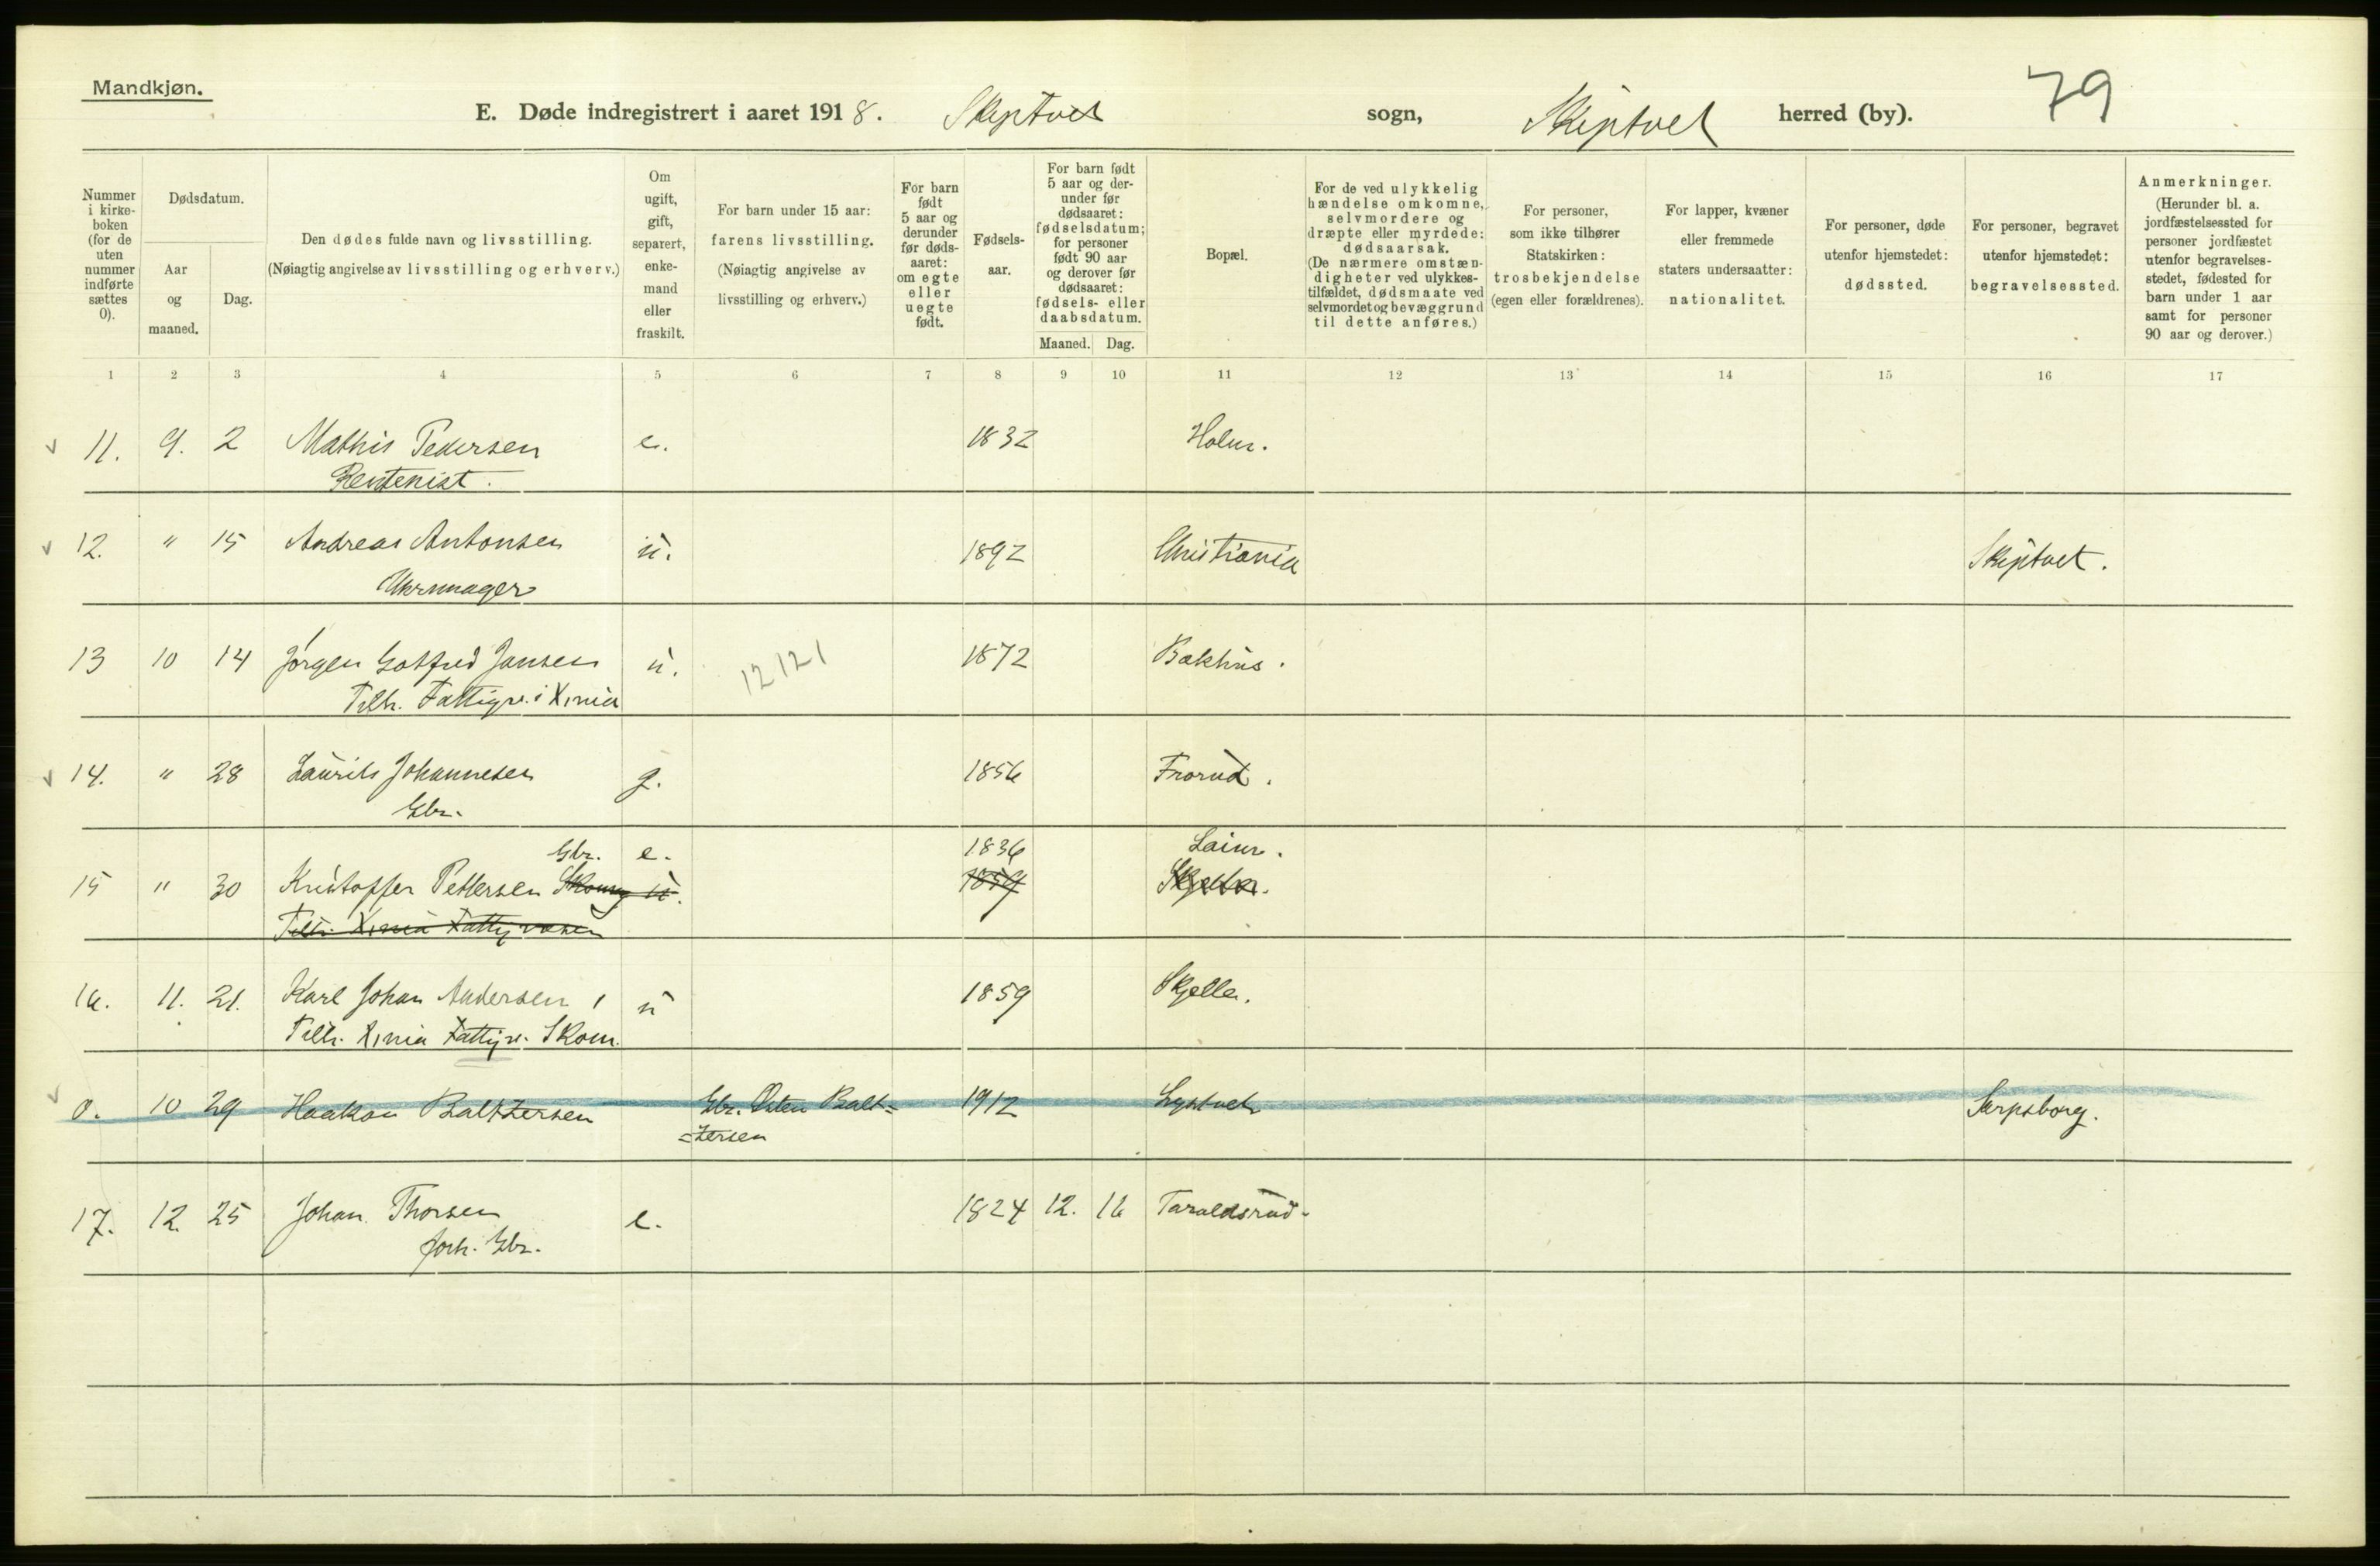 Mandkjøn.
79
E. Døde indregistrert i aaret 1918. Skiptvet sogn, Skiptvet herred (by).
Nummer i kirke-boken (for de uten nummer indførte sættes 0).
Dødsdatum.
Aar og maaned.
Dag.
Den dødes fulde navn og livsstilling.
(Nøiagtig angivelse av livsstilling og erhverv.)
Om ugift, gift, separert, enke-mand eller fraskilt.
For barn under 15 aar: farens livsstilling. (Nøiagtig angivelse av livsstilling og erhverv.)
For barn født 5 aar og derunder før døds-aaret: om egte eller uegte født.
Fødsels-aar.
For barn født 5 aar og der-under før dødsaaret: fødselsdatum; for personer født 90 aar og derover før dødsaaret: fødsels- eller daabsdatum.
Maaned. Dag.
Bopæl.
For de ved ulykkelig hændelse omkomne, selvmordere og dræpte eller myrdede: dødsaarsak. (De nærmere omstæn-digheter ved ulykkes-tilfældet, dødsmaate ved selvmordet og bevæggrund til dette anføres.)
For personer, som ikke tilhører Statskirken: trosbekjendelse (egen eller forældrenes).
For lapper, kvæner eller fremmede staters undersaatter: nationalitet.
For personer, døde utenfor hjemstedet: dødssted.
For personer, begravet utenfor hjemstedet: begravelsessted.
Anmerkninger. (Herunder bl. a. jordfæstelsessted for personer jordfæstet utenfor begravelses-stedet, fødested for barn under 1 aar samt for personer 90 aar og derover.)
1 2 3 4 5 6 7 8 9 10 11 12 13 14 15 16 17
11. 9. 2 Mathis Pedersen e. 1832 Holm.
Rentenist.
12. " 15 Andreas Antonsen u. 1892 Christiania Skiptvet.
Uhrmager
13 10 14 Jørgen Gotfred Jansen u. 12121 1872 Bakhus.
Tilh. Fattigv. i Xrnia
14. " 28 Laurits Johannesen g. 1856 Frorud.
Gbr.
Gbr. e. 1836 Laim.
15 " 30 Kristoffer Pettersen Skomg u. 1859 Skjelle.
Tilh. Xrnia Fattigvæsen
16. 11. 21. Karl Johan Andersen, u 1859 Skjelle.
Tilh. Xrnia Fattigv. Skom.
0. 10 29 Haakon Baltzersen Gbr. Osten Balt= 1912 Lystvet Sarpsborg.
=zersen
17. 12. 25 Johan Thorsen e. 1824 12. 16 Taraldsrud.
forh. Gbr.